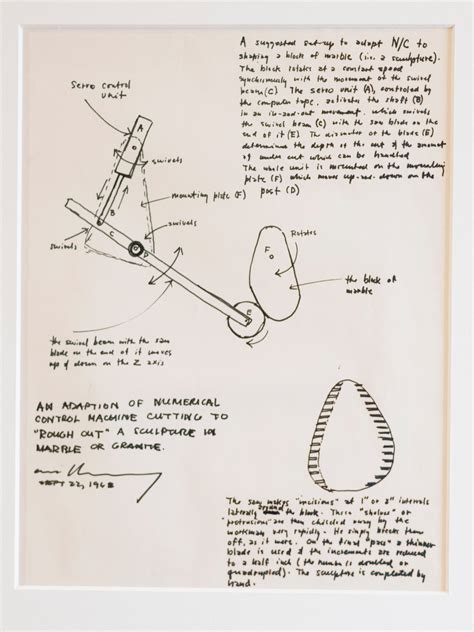 A suggested set-up to adapt N/C to
shaping a block of marble (i.e. a sculpture).
The block rotates at a constant speed
synchronously with the movement of the swivel
beam (C) The servo unit (A), controled by
the computer tape, activates the shaft (B)
in an in-and-out movement, which swivels
the swivel beam (C) with the saw blade on the
end of it (E) The diameter of the blade (E)
determines the depth of the cut & the amount
of under cut which can be handled
The whole unit is mounted on the mounting
plate (F) which moves up and down on the
post (D)
Servo control
unit
A
swivels
mounting plate (F)
B
swivels
C
D
swivels
F
Rotates
the block of
marble
E
the swivel beam with the saw
blade on the end of it moves
up & down on the Z axis
AN ADAPTION OF NUMERICAL
CONTROL MACHINE CUTTING TO
"ROUGH OUT" A SCULPTURE IN
MARBLE OR GRANITE.
SEPT 22, 1968
The saw makes "incisions" at 1" or 2" intervals
laterally around the block. These "shelves" or
protrusions are then chiseled away by the
workman very rapidly. He simply breaks them
off, as it were. On the final "pass" a thinner
blade is used & the increments are reduced
to a half inch (the number is doubled or
quadrupled). The sculpture is completed by
hand.